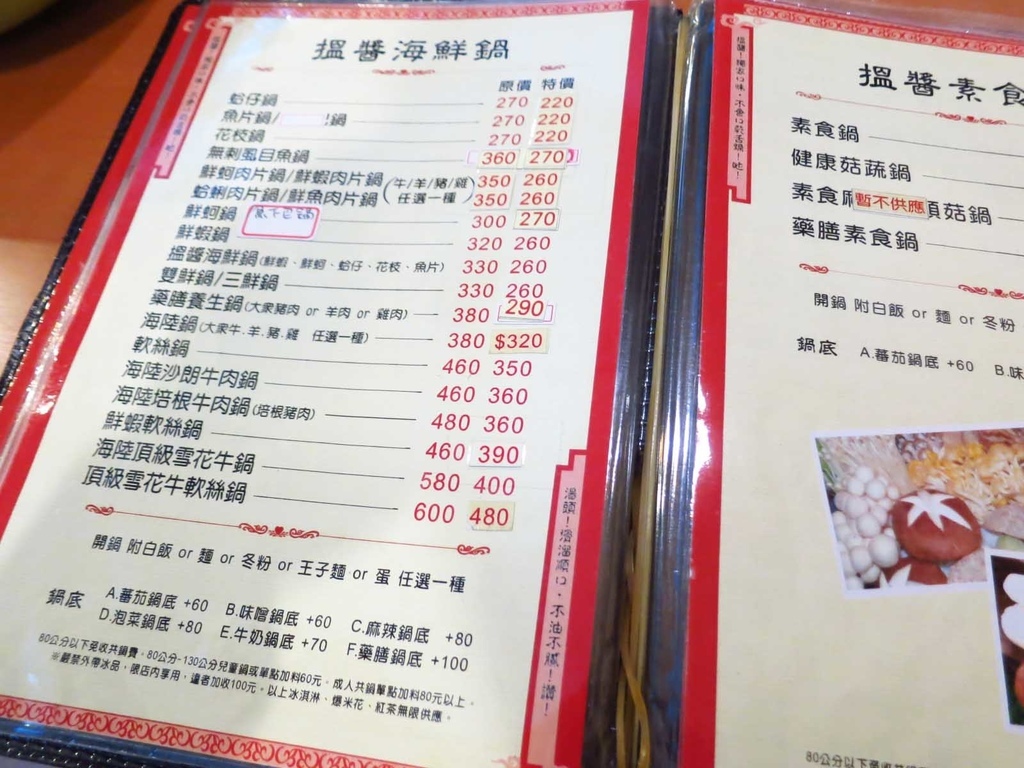 搵醬海鮮鍋
原價 特價
蛤仔鍋 270 220
魚片鍋/ 鍋 270 220
花枝鍋 270 220
無刺虱目魚鍋 360 270
鮮蚵肉片鍋/鮮蝦肉片鍋 (牛/羊/豬/雞 350 260
蛤蜊肉片鍋/鮮魚肉片鍋 任選一種) 350 260
鮮蚵鍋 300 270
鮮蝦鍋 320 260
搵醬海鮮鍋(鮮蝦、鮮蚵、蛤仔、花枝、魚片) 330 260
雙鮮鍋/三鮮鍋 330 260
藥膳養生鍋(大眾豬肉 or 羊肉 or 雞肉) 380 290
海陸鍋(大眾牛.羊.豬.雞 任選一種) 380 $320
軟絲鍋 460 350
海陸沙朗牛肉鍋 460 360
海陸培根牛肉鍋(培根豬肉) 480 360
鮮蝦軟絲鍋 460 390
海陸頂級雪花牛鍋 580 400
頂級雪花牛軟絲鍋 600 480
開鍋 附白飯 or 麵 or 冬粉 or 王子麵 or 蛋 任選一種
鍋底 A.蕃茄鍋底 +60 B.味噌鍋底 +60 C.麻辣鍋底 +80
D.泡菜鍋底 +80 E.牛奶鍋底 +70 F.藥膳鍋底 +100
80公分以下免收共鍋費。80公分-130公分兒童鍋或單點加料60元。成人共鍋單點加料80元以上。
※嚴禁外帶冰品，限店內享用，違者加收100元。以上冰淇淋、爆米花、紅茶無限供應。
湯頭！滑溜順口，不油不膩！讚！
搵醬！獨家口味，不會口乾舌燥！呦！
搵醬素食
素食鍋
健康菇蔬鍋
素食麻 暫不供應 頭菇鍋
藥膳素食鍋
開鍋 附白飯 or 麵 or 冬粉
鍋底 A.蕃茄鍋底 +60 B.味
80公分以下免收共鍋費。80公分